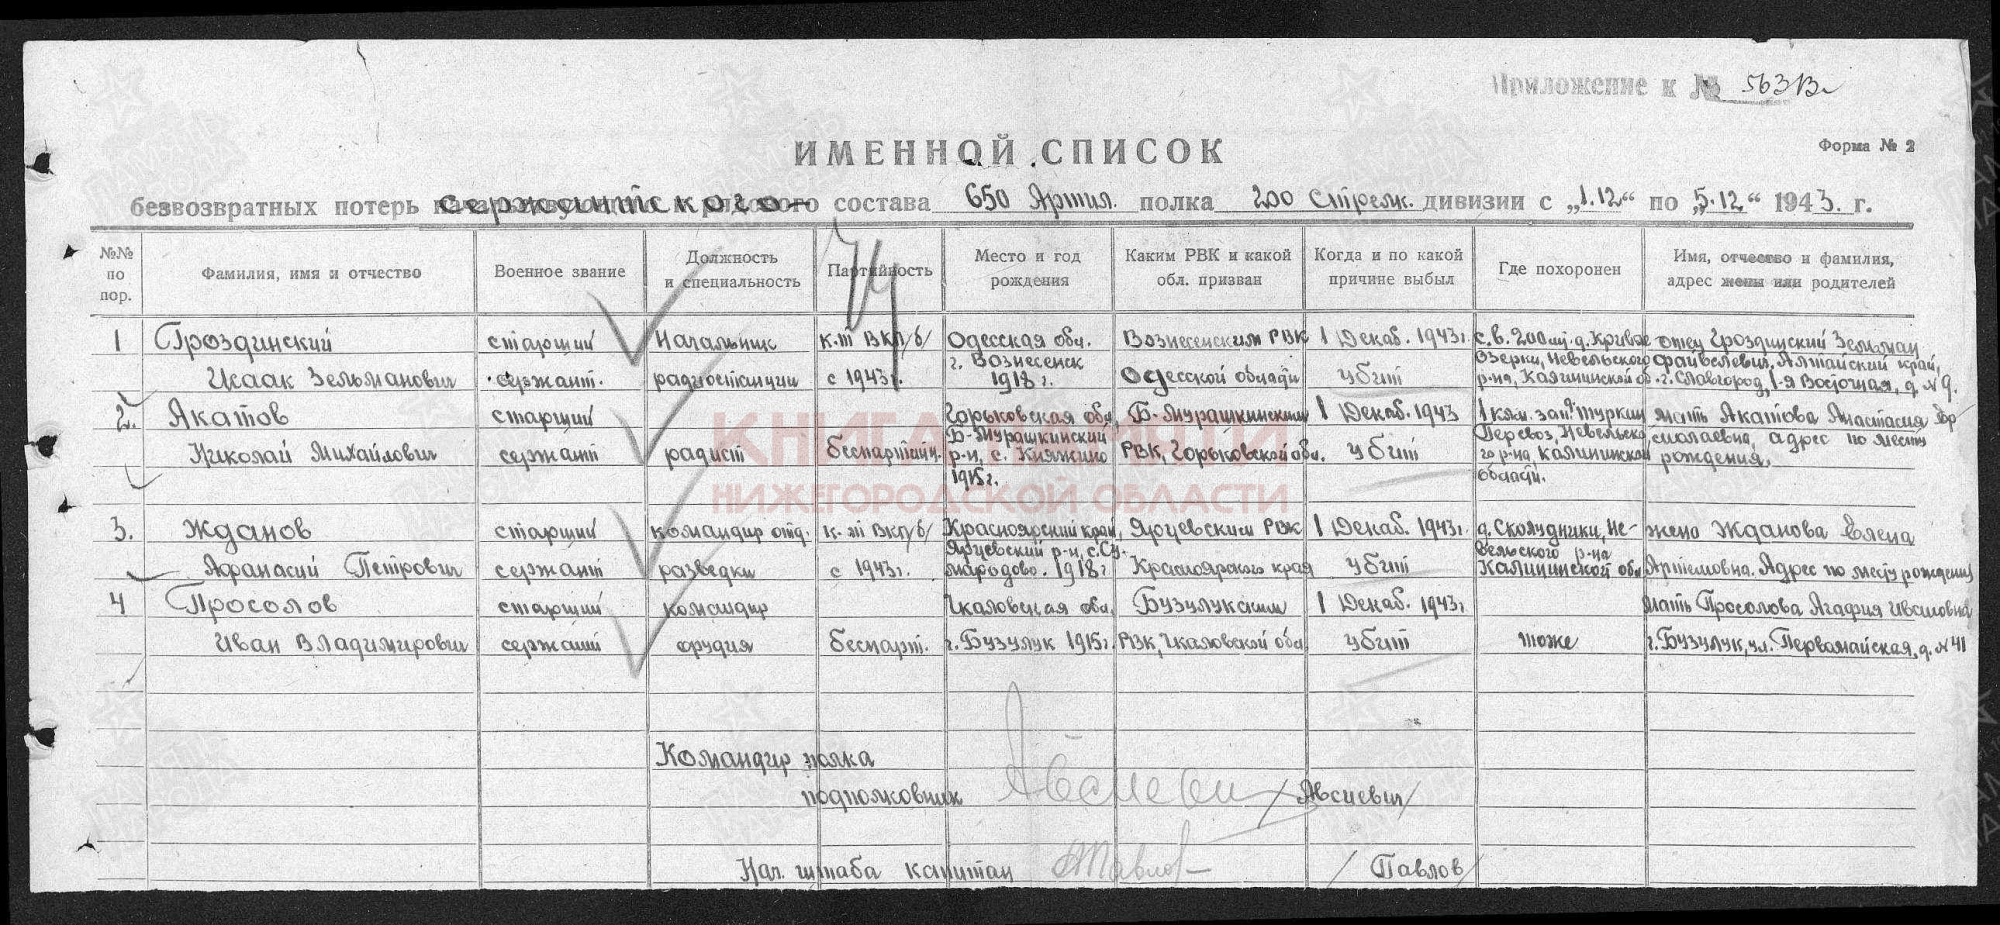 Приложение к № 563 Вн
ИМЕННОЙ СПИСОК
Форма № 2
безвозвратных потерь сержантского состава 650 Артил. полка 200 Стрелк. дивизии с „1.12“ по „5.12“ 1943. г.
74
№№ по пор.
Фамилия, имя и отчество
Военное звание
Должность и специальность
Партийность
Место и год рождения
Каким РВК и какой обл. призван
Когда и по какой причине выбыл
Где похоронен
Имя, отчество и фамилия, адрес жены или родителей
1
Гроздинский
Исаак Зельманович
старший
сержант.
Начальник
радиостанции
к-т ВКП/б/
с 1943г.
Одесская обл.
г. Вознесенск
1918 г.
Вознесенским РВК
Одесской облади
1 Декаб. 1943г.
убит
с.в. 200 мт. д. Кривое
Озерки, Невельского
р-на, Калининской об
отец Гроздинский Зельман
Файвелевич, Алтайский край,
г. Славгород, 1-я Восточная, д. № 9.
2.
Акатов
Николай Михайлович
старший
сержант
радист
беспартийн.
Горьковская обл,
Б-Мурашкинский
р-н, с. Княжино
1915г.
Б-Мурашкинским
РВК, Горьковской обл.
1 Декаб. 1943
убит
1 клм. зап.
Перевоз, Невельско
го р-на Калининской
облади.
мать Акатова Анастасия
адрес по месту
рождения.
3.
Жданов
Афанасий Петрович
старший
сержант
командир отд.
разведки
к-т ВКП/б/
с 1943г.
Красноярский край,
Ярцевский р-н, с. Су-
мародово. 1918г
Ярцевским РВК
Красноярского края
1 Декаб. 1943г.
убит
д. Не-
вельского р-на
Калининской обл
жена Жданова Елена
Артемовна. Адрес по месту рождения
4
Просолов
Иван Владимирович
старший
сержант
командир
орудия
беспарт.
Чкаловская обл,
г. Бузулук 1915г.
Бузулукским
РВК, Чкаловской обл
1 Декаб. 1943г
убит
тоже
мать Просолова Агафия Ивановна
г. Бузулук, ул. Первомайская, д. № 41
КНИГА ПАМЯТИ
НИЖЕГОРОДСКОЙ ОБЛАСТИ
Командир полка
подполковник /Авсиевич/
Нач. штаба капитан /Павлов/